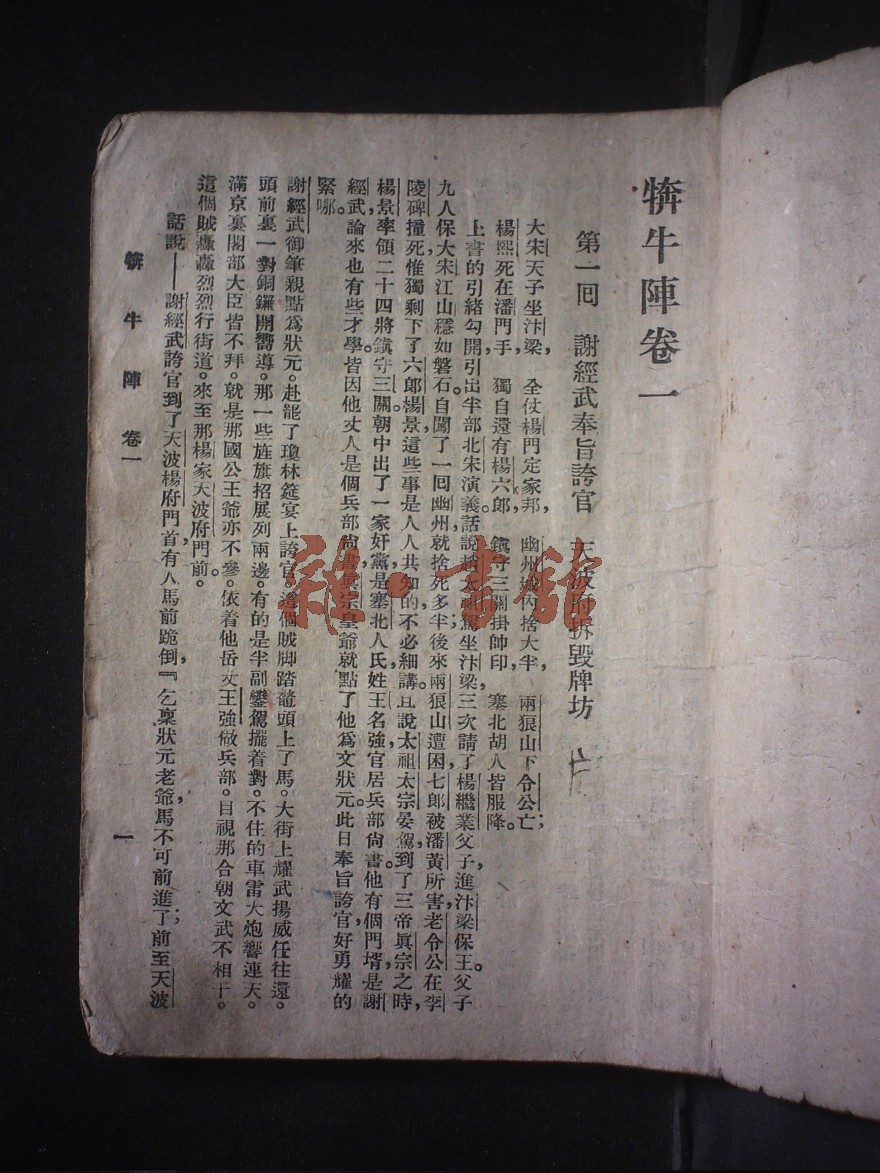 犇牛陣卷一
第一回　謝經武奉旨誇官　天波府拆毀牌坊
大宋天子坐汴梁，　全仗楊門定家邦，　幽州城內捨大半　兩狼山下令公亡；
楊熙死在潘門手，　獨自還有楊六郎，　鎮守三關掛帥印，　塞北胡人皆服降。
上書的引緒勾開引出半部北宋演義。話說捨太祖駕坐汴梁，三次請了楊繼業父子，進汴梁保王。父子
九人保大宋江山穩如磐石。自闖了一回幽州就捨死多半；後來兩狼山遭困，七郎被潘黃所害，老令公在李
陵碑撞死，惟獨剩下了六郎楊景。這些事是人人共知的不必細講。且說太祖太宗晏駕，到了三帝眞宗之時，
楊景率領二十四將，鎮守三關。朝中出了一家奸黨，是塞北人氏姓王名強官居兵部尚書。他有個門壻，是謝
經武，論來也有些才學。皆因他丈人是個兵部尚書，眞宗皇爺就點了他爲文狀元。此日奉旨誇官，好勇耀的
緊哪。
謝經武御筆親點爲狀元。赴罷了瓊林筵宴上誇官。這個賊脚踏鼇頭上了馬。大街上耀武揚威任往還。
頭前裏一對銅鑼開嚮導。那一些旌旗招展列兩邊。有的是半副鑾駕擺着對。不住的車雷大炮響連天。
滿京裏閣部大臣皆不拜。就是那國公王爺亦不參。依着他岳丈王強做兵部。目視那合朝文武不相干。
這個賊轟轟烈烈行街道。來至那楊家天波府門前。
話說——謝經武誇官到了天波楊府門首，有人馬前跪倒，『乞稟狀元老爺，馬不可前進了；前至天波
犇牛陣　卷一
一
雜·書館